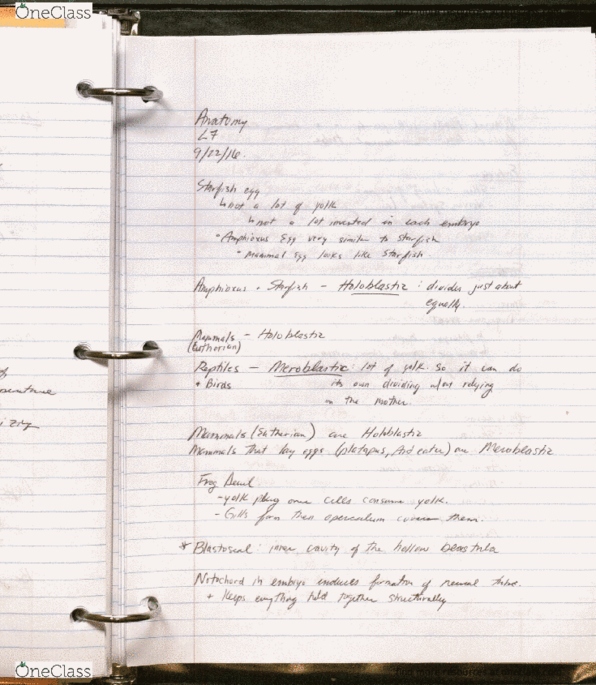 OneClass
Anatomy
L7
9/22/16.
Starfish egg
↳not a lot of yolk
↳not a lot invested in each embryo
• Amphioxus Egg very similar to starfish
• mammal egg looks like starfish.
Amphioxus + Starfish - Holoblastic : divides just about
equally.
Mammals - Holoblastic
(Eutherian)
Reptiles - Meroblastic: lot of yolk so it can do
+ Birds its own dividing relying
on the mother.
Mammals (Eutherian) are Holoblastic
Mammals that lay eggs (platopus, Anteater) are Meroblastic
Frog
- yolk plug once cells consume yolk.
- Gills form then operculum covers them.
* : inner cavity of the hollow blastula
Notochord in embryo induces formation of neural tube.
+ Keeps everything held together structurally
OneClass